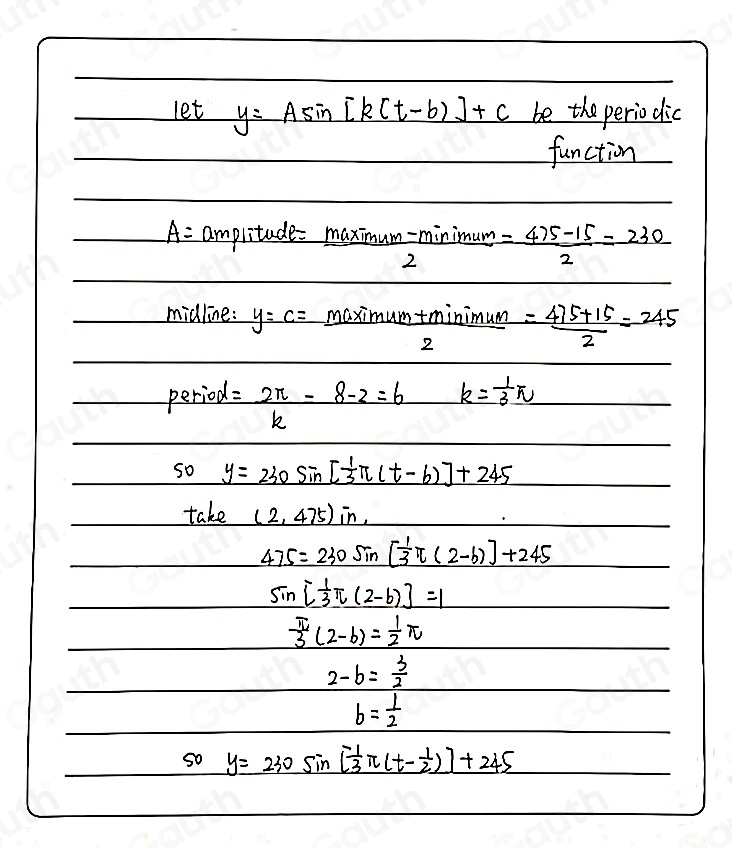 let y = A sin [k(t-b)] + c be the periodic
function
A = amplitude = (maximum - minimum)/2 = (475-15)/2 = 230
midline: y = c = (maximum+minimum)/2 = (475+15)/2 = 245
period = 2π/k = 8-2 = 6 k = 1/3 π
so y = 230 sin [1/3 π (t-b)] + 245
take (2, 475) in,
475 = 230 sin [1/3 π (2-b)] + 245
sin [1/3 π (2-b)] = 1
π/3 (2-b) = 1/2 π
2-b = 3/2
b = 1/2
so y = 230 sin [1/3 π (t - 1/2)] + 245